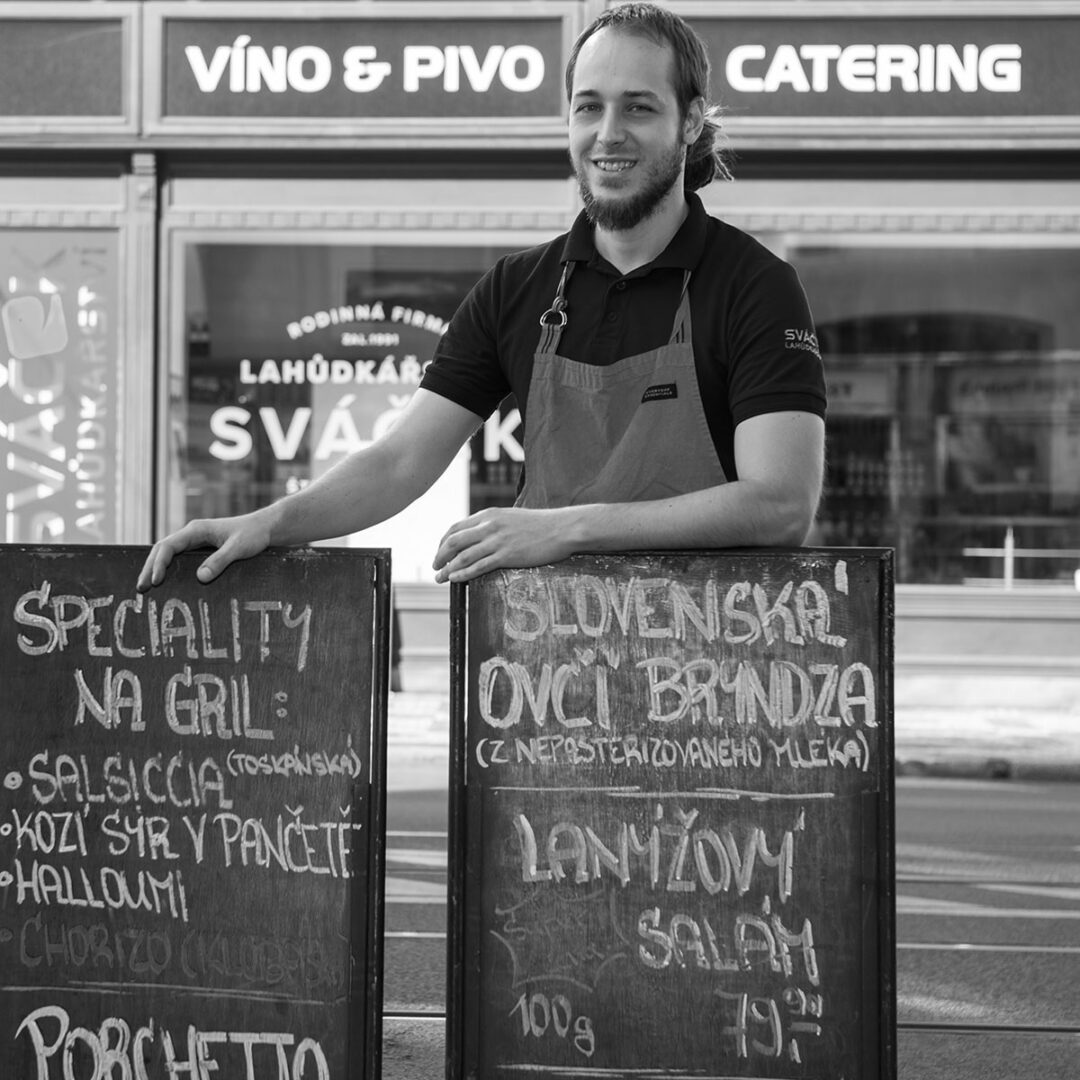 VÍNO & PIVO
CATERING
RODINNÁ FIRMA
ZAL.1991
LAHŮDKÁŘS
SVÁ K
SVÁČ
LAHŮDK
SPECIALITY
NA GRIL:
• SALSICCIA (TOSKÁNSKÁ)
• KOZÍ SÝR V PANČETĚ
• HALLOUMI
• CHORIZO
PORCHETTO
SLOVENSKÁ
OVČÍ BRYNDZA
(Z NEPASTERIZOVANÉHO MLÉKA)
LANÝŽOVÝ
SALÁM
100g 79,90